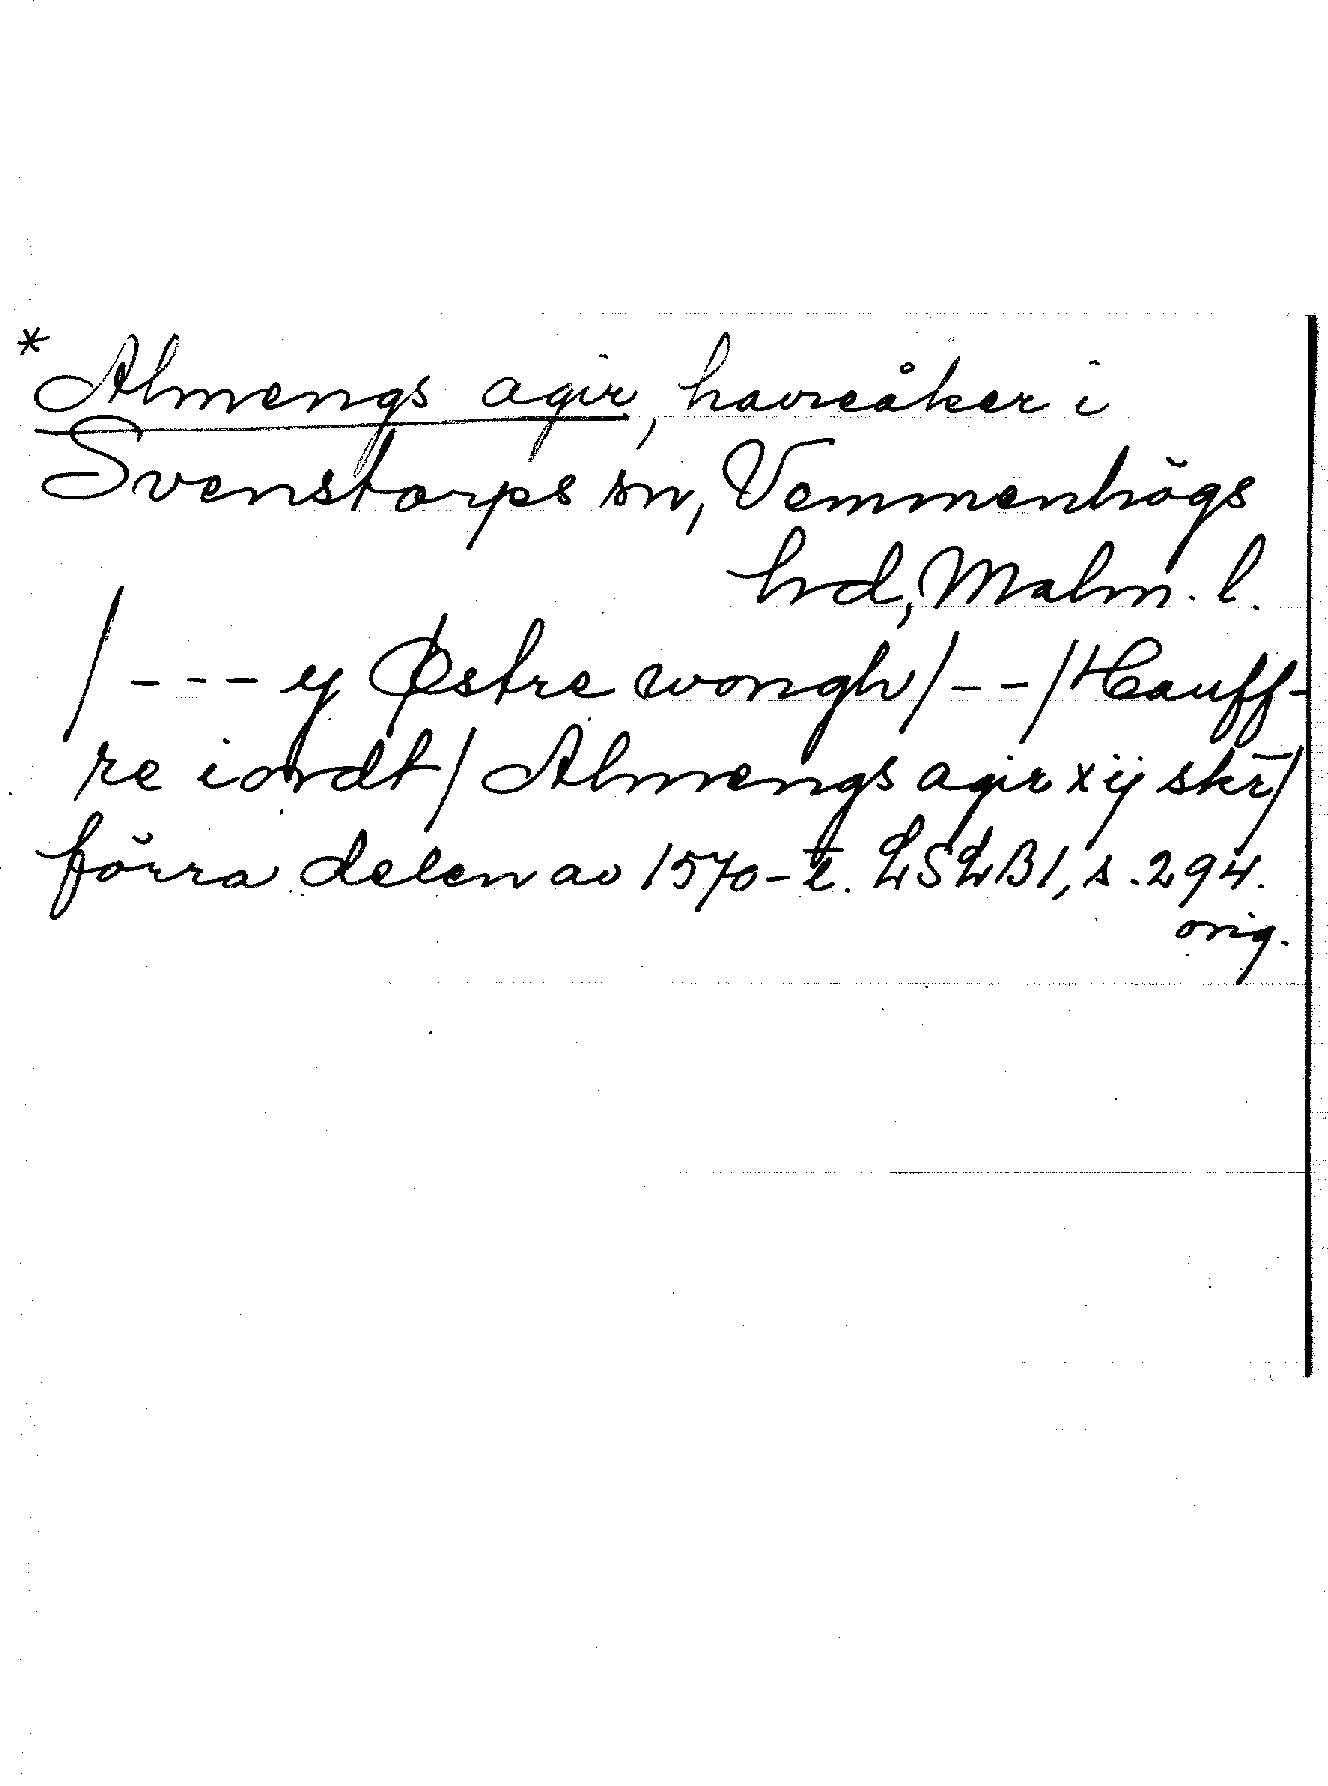 * Almengs agir, havreåker i
Svenstorps sn, Vemmenhögs
hd, Malm. l.
/ - - - ij Østre wongh / - - / Hauff-
re iordt / Almengs agir xij skr̄ /
förra delen av 1570-t. LSLB1, s. 294.
orig.